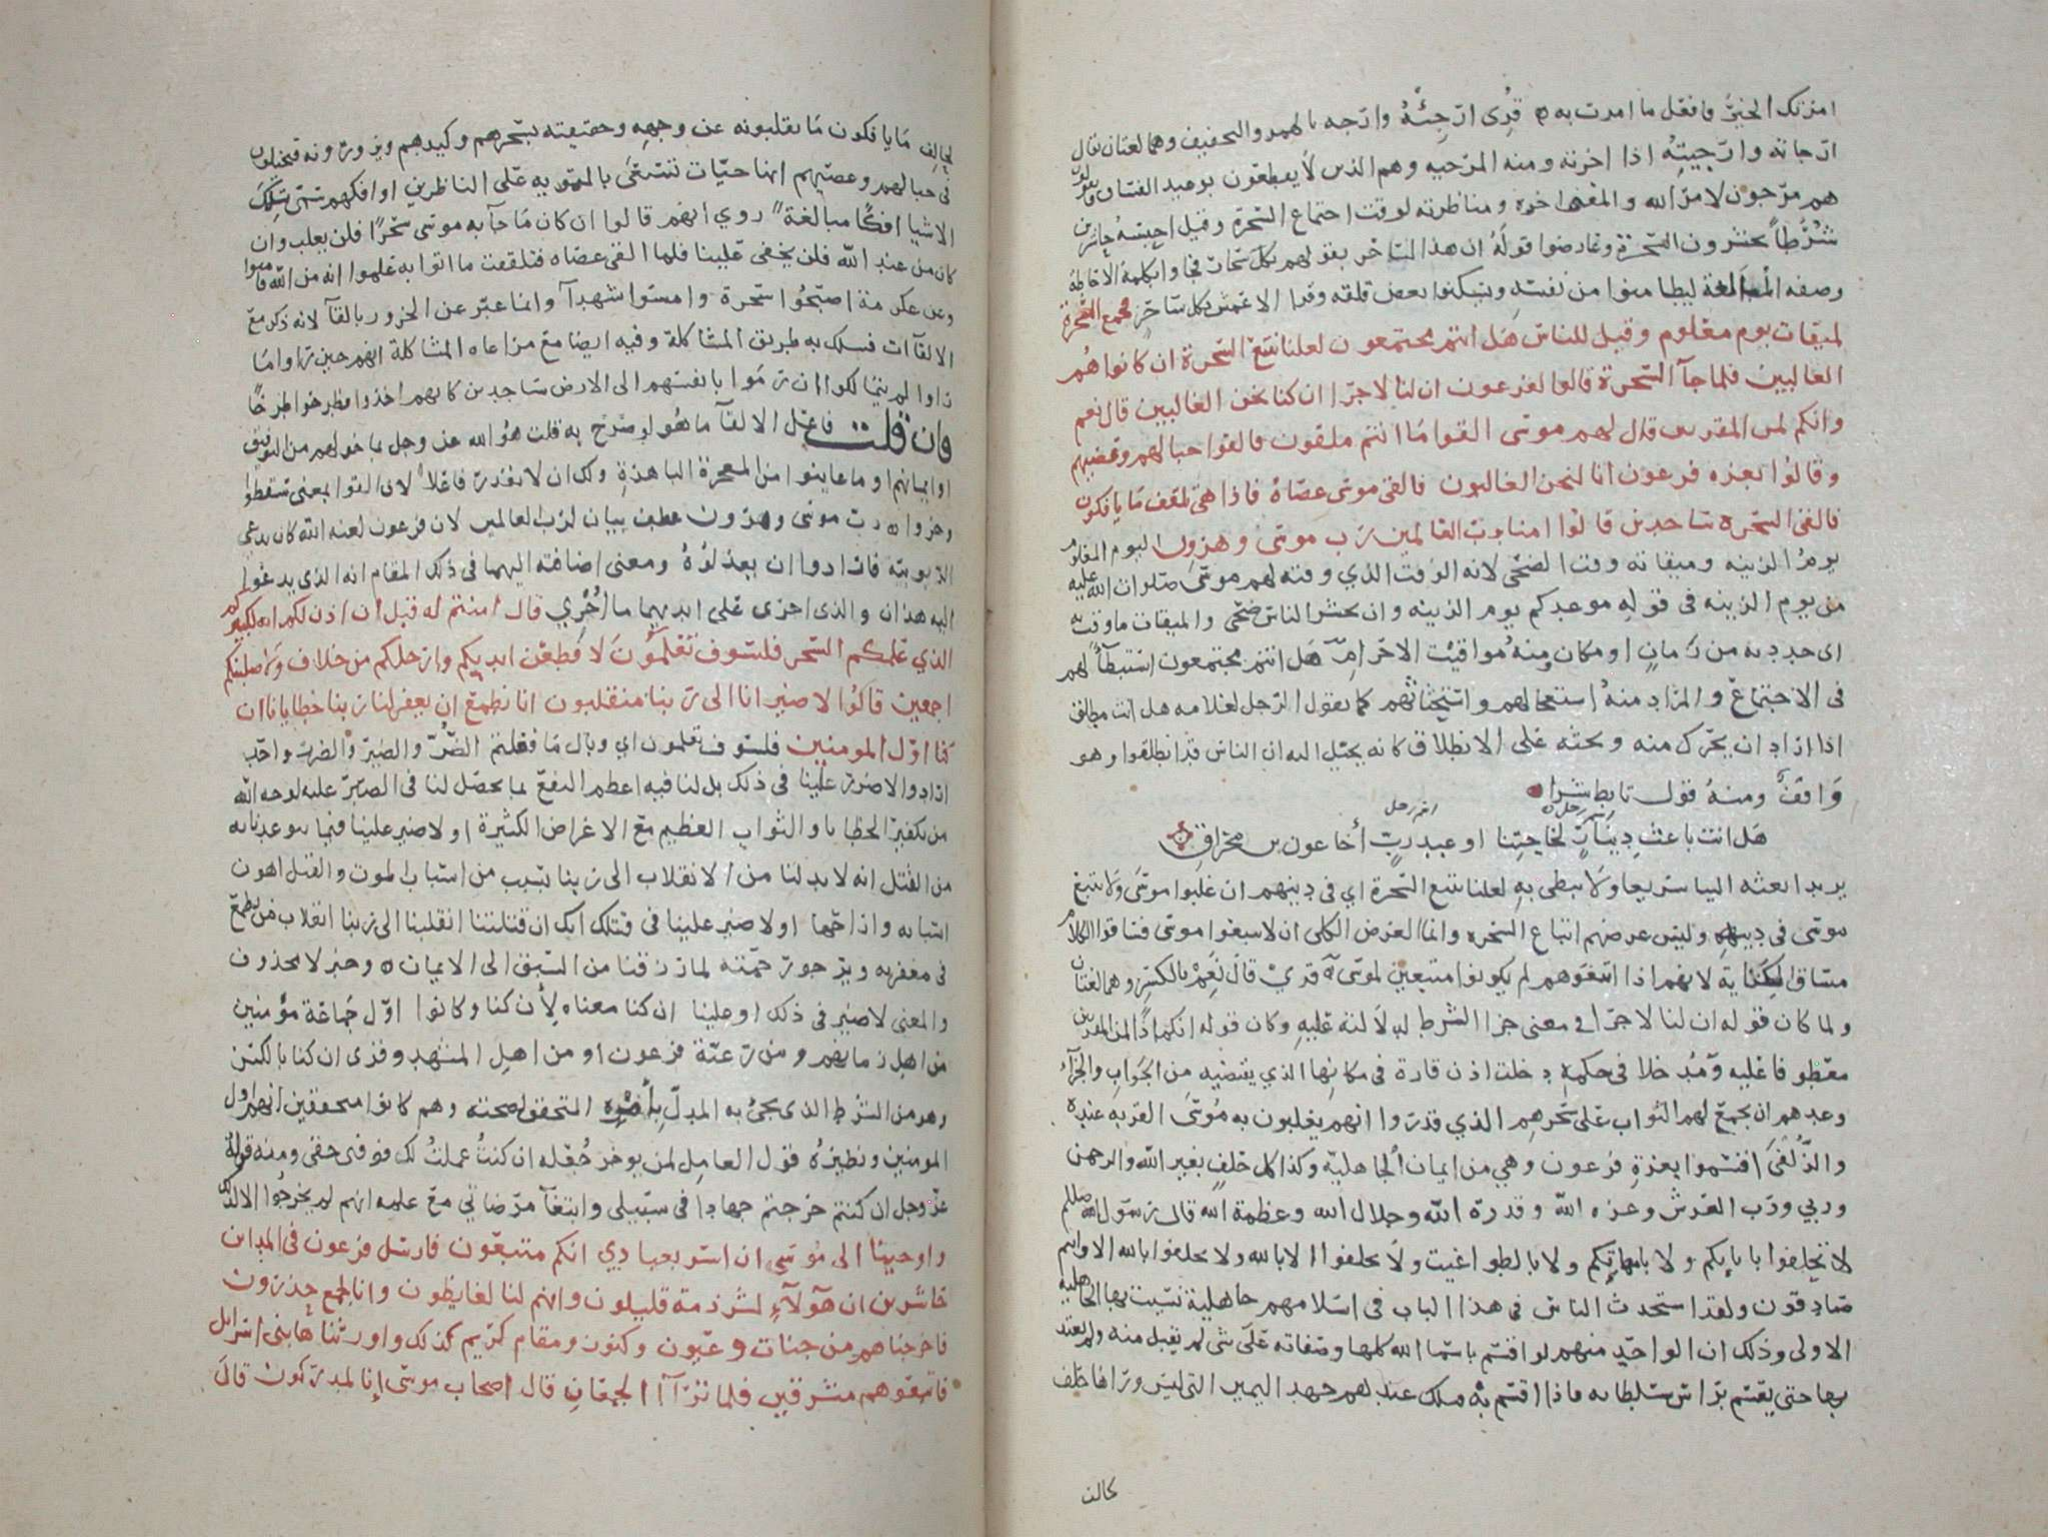 امرتك الخير فافعل ما امرت به قرى ارجئه وارجه بالهمز والتخفيف وهما لغتان يقال
ارجاته وارجيته اذا اخرته ومنه المرجيه وهم الذين لا يقطعون بوعيد الفساق ويقولون
هم مرجون لامر الله والمعنى اخره ومناظرته لوقت اجتماع السحرة وقيل احبسه حاشرين
شرطا يحشرون السحرة وعارضوا قوله ان هذا لساحر بقولهم بكل سحار فجاوا بكلمة الاحاطة
وصفه المبالغة ليطامنوا من نفسه ويسكنوا بعض قلقه وقرا الاعمش بكل ساحر فجمع السحرة
لميقات يوم معلوم وقيل للناس هل انتم مجتمعون لعلنا نتبع السحرة ان كانوا هم
الغالبين فلما جآ السحرة قالوا لفرعون ان لنا لاجرا ان كنا نحن الغالبين قال نعم
وانكم لمن المقربين قال لهم موسى القوا ما انتم ملقون فالقوا حبالهم وعصيهم
وقالوا بعزه فرعون انا لنحن الغالبون فالقى موسى عصاه فاذا هي تلقف ما يافكون
فالقى السحره ساجدين قالوا امنا برب العالمين رب موسى وهرون اليوم المعلوم
يوم الزينه وميقاته وقت الضحى لانه الوقت الذي وقته لهم موسى صلوات الله عليه
من يوم الزينه في قوله موعدكم يوم الزينه وان يحشر الناس ضحى والميقات ما وقت به
اى حدد به من زمان او مكان ومنه مواقيت الاحرام هل انتم مجتمعون استبطآ لهم
فى الاجتماع والمراد منه استعجالهم واستحثاثهم كما يقول الرجل لغلامه هل انت منطلق
اذا اراد ان يحرك منه ويحثه على الانطلاق كانه يخيل اليه ان الناس قد انطلقوا وهو
واقف ومنه قول تابط شرا
اسم رجل
هل انت باعث دينار لحاجتنا او عبد رب أخا عون بن مخراق
يريد ابعثه الينا سريعا ولا تبطي به لعلنا نتبع السحرة اي في دينهم ان غلبوا موسى ولا نتبع
موسى فى دينه وليس غرضهم اتباع السحره وانما الغرض الكلى ان لا يتبعوا موسى فساقوا الكلام
مساق الكناية لانهم اذا اتبعوهم لم يكونوا متبعين لموسى قرئ قال نعم بالكسر وهما لغتان
ولما كان قوله ان لنا لاجرا في معنى جزا الشرط لدلالته عليه وكان قوله انكم اذا لمن المقربين
معطوفا عليه ومدخلا في حكمه دخلت اذن قارة فى مكانها الذي يقتضيه من الجواب والجزآ
وعدهم ان يجمع لهم الثواب على سحرهم الذي قدروا انهم يغلبون به موسى القربه عنده
والزلفى اقسموا بعزة فرعون وهي من ايمان الجاهلية وكذا كل حلف بغير الله والرحمن
وربي ورب العرش وعزه الله وقدرة الله وجلال الله وعظمة الله قال رسول الله صللم
لا تحلفوا بابايكم ولا بامهاتكم ولا بالطواغيت ولا تحلفوا الا بالله ولا تحلفوا بالله الا وانتم
صادقون ولقد استحدث الناس فى هذا الباب فى اسلامهم جاهلية نسيت بها الجاهلية
الاولى وذلك ان الواحد منهم لو اقسم باسما الله كلها وصفاته على شى لم تقبل منه ولم يعتد
بها حتى يقسم براس سلطانه فاذا اقسم به فتلك عندهم جهد اليمين التى ليس وراها حلف
لحالف
لحالف ما يافكون ما يقلبونه عن وجهه وحقيقته بسحرهم وكيدهم ويزورونه فيخيلون
فى حبالهم وعصيهم انها حيات تسعى بالتمويه على الناظرين او افكهم سمى تلك
الاشيا افكا مبالغة روي انهم قالوا ان كان ما جآ به موسى سحرا فلن يغلب وان
كان من عند الله فلن يخفى علينا فلما القى عصاه فتلقفت ما اتوا به علموا انه من الله فامنوا
وعن عكرمة اصبحوا سحرة وامسوا شهدآ وانما عبر عن الخرور بالالقآ لانه ذكر مع
الالقآات فسلك به طريق المشاكلة وفيه ايضا مع مراعاه المشاكلة انهم حين راوا ما
راوا لم يتمالكوا ان رموا بانفسهم الى الارض ساجدين كانهم اخذوا فطرحوا طرحا
فان قلت فاعل الالقآ ما هو لو صرح به قلت هو الله عز وجل بما خولهم من التوفيق
او ايمانهم او ما عاينوا من المعجزة الباهرة ولك ان لا تقدر فاعلا لان القوا بمعنى سقطوا
وخروا رب موسى وهرون عطف بيان لرب العالمين لان فرعون لعنه الله كان يدعي
الربوبية فارادوا ان يعزلوه ومعنى اضافته اليهما فى ذلك المقام انه الذى يدعوا
اليه هذان والذى اجرى على ايديهما ما اجرى قال امنتم له قبل ان اذن لكم انه لكبيركم
الذي علمكم السحر فلسوف تعلمون لاقطعن ايديكم وارجلكم من خلاف ولاصلبنكم
اجمعين قالوا لا ضير انا الى ربنا منقلبون انا نطمع ان يغفر لنا ربنا خطايانا ان
كنا اول المومنين فلسوف تعلمون اي وبال ما فعلتم الضر والضير والضور واحد
ارادوا لا ضرر علينا في ذلك بل لنا فيه اعظم النفع لما يحصل لنا في الصبر عليه لوجه الله
من تكفير الخطايا والثواب العظيم مع الاعراض الكثيرة او لا ضير علينا فيما تتوعدنا به
من القتل انه لابد لنا من الانقلاب الى ربنا بسبب من اسباب الموت والقتل اهون
اسبابه وارجاها او لا ضير علينا في قتلك انك ان قتلتنا انقلبنا الى ربنا انقلاب من يطمع
في مغفرته ويرجو رحمته لما رزقنا من السبق الى الايمان وخبر لا محذوف
والمعنى لا ضير في ذلك او علينا ان كنا معناه لأن كنا وكانوا اول جماعة مؤمنين
من اهل زمانهم ومن رعية فرعون او من اهل المشهد وقرى ان كنا بالكسر
وهو من الشرط الذى يجئ به المدل بأمره المتحقق لصحته وهم كانوا متحققين انهم اول
المومنين ونظيره قول العامل لمن يوخر جعله ان كنت عملت لك فوفنى حقى ومنه قوله
عز وجل ان كنتم خرجتم جهادا فى سبيلى وابتغآ مرضاتي مع علمه انهم لم يخرجوا الا لذلك
واوحينا الى موسى ان اسر بعبادي انكم متبعون فارسل فرعون فى المداين
حاشرين ان هآولآء لشرذمة قليلون وانهم لنا لغايظون وانا لجمع حذرون
فاخرجناهم من جنات وعيون وكنوز ومقام كريم كذلك واورثناها بنى اسرايل
فاتبعوهم مشرقين فلما ترآا الجمعان قال اصحاب موسى إنا لمدركون قال